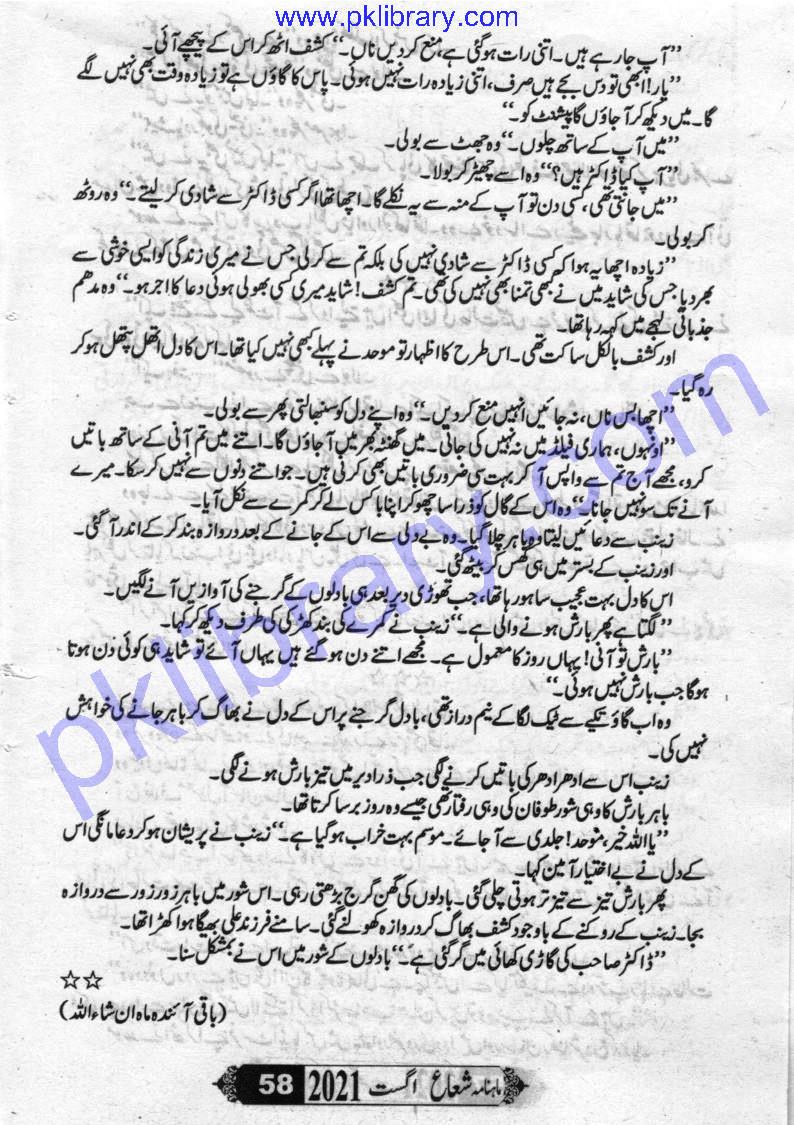 www.pklibrary.com
”آپ جا رہے ہیں۔ اتنی رات ہو گئی ہے، منع کر دیں ناں۔“ کشف اٹھ کر اس کے پیچھے آئی۔
”یار! ابھی تو دس بجے ہیں صرف، اتنی زیادہ رات نہیں ہوئی۔ پاس کا گاؤں ہے تو زیادہ وقت بھی نہیں لگے
گا۔ میں دیکھ کر آ جاؤں گا پیشنٹ کو۔“
”میں آپ کے ساتھ چلوں۔“ وہ جھٹ سے بولی۔
”آپ کیا ڈاکٹر ہیں؟“ وہ اسے چھیڑ کر بولا۔
”میں جانتی تھی، کسی دن تو آپ کے منہ سے یہ نکلے گا۔ اچھا تھا اگر کسی ڈاکٹر سے شادی کر لیتے۔“ وہ روٹھ
کر بولی۔
”زیادہ اچھا یہ ہوا کہ کسی ڈاکٹر سے شادی نہیں کی بلکہ تم سے کر لی جس نے میری زندگی کو ایسی خوشی سے
بھر دیا جس کی شاید میں نے کبھی تمنا بھی نہیں کی تھی۔ تم کشف! شاید میری کسی بھولی ہوئی دعا کا اجر ہو۔“ وہ مدھم
جذباتی لہجے میں کہہ رہا تھا۔
اور کشف بالکل ساکت تھی۔ اس طرح کا اظہار تو موحد نے پہلے کبھی نہیں کیا تھا۔ اس کا دل اتھل پتھل ہو کر
رہ گیا۔
”اچھا بس ناں، نہ جائیں انہیں منع کر دیں۔“ وہ اپنے دل کو سنبھالتی پھر سے بولی۔
”اونہوں، ہماری فیلڈ میں نہ نہیں کی جاتی۔ میں گھنٹہ بھر میں آ جاؤں گا۔ اتنے میں تم آنی کے ساتھ باتیں
کرو، مجھے آج تم سے واپس آ کر بہت سی ضروری باتیں بھی کرنی ہیں۔ جو اتنے دنوں سے نہیں کر سکا۔ میرے
آنے تک سو نہیں جانا۔“ وہ اس کے گال کو ذرا سا چھو کر اپنا باکس لے کر کمرے سے نکل آیا۔
زینب سے دعائیں لیتا وہ باہر چلا گیا۔ وہ بے دلی سے اس کے جانے کے بعد دروازہ بند کر کے اندر آ گئی۔
اور زینب کے بستر میں ہی گھس کر بیٹھ گئی۔
اس کا دل بہت عجیب سا ہو رہا تھا، جب تھوڑی دیر بعد ہی بادلوں کے گرجنے کی آوازیں آنے لگیں۔
”لگتا ہے پھر بارش ہونے والی ہے۔“ زینب نے کمرے کی بند کھڑکی کی طرف دیکھ کر کہا۔
”بارش تو آنی! یہاں روز کا معمول ہے۔ مجھے اتنے دن ہو گئے ہیں یہاں آئے تو شاید ہی کوئی دن ہوتا
ہو گا جب بارش نہیں ہوئی۔“
وہ اب گاؤ تکیے سے ٹیک لگا کے نیم دراز تھی، بادل گرجنے پر اس کے دل نے بھاگ کر باہر جانے کی خواہش
نہیں کی۔
زینب اس سے ادھر ادھر کی باتیں کرنے لگی جب ذرا دیر میں تیز بارش ہونے لگی۔
باہر بارش کا وہی شور طوفان کی وہی رفتار تھی جیسے وہ روز برسا کرتا تھا۔
”یا اللہ خیر، موحد! جلدی سے آ جائے۔ موسم بہت خراب ہو گیا ہے۔“ زینب نے پریشان ہو کر دعا مانگی اس
کے دل نے بے اختیار آمین کہا۔
پھر بارش تیز سے تیز تر ہوتی چلی گئی۔ بادلوں کی گھن گرج بڑھتی رہی۔ اس شور میں باہر زور زور سے دروازہ
بجا۔ زینب کے روکنے کے باوجود کشف بھاگ کر دروازہ کھولنے گئی۔ سامنے فرزند علی بھیگا ہوا کھڑا تھا۔
”ڈاکٹر صاحب کی گاڑی کھائی میں گر گئی ہے۔“ بادلوں کے شور میں اس نے بمشکل سنا۔
☆☆
(باقی آئندہ ماہ ان شاء اللہ)
ماہنامہ شعاع اگست 2021 58
pklibrary.com